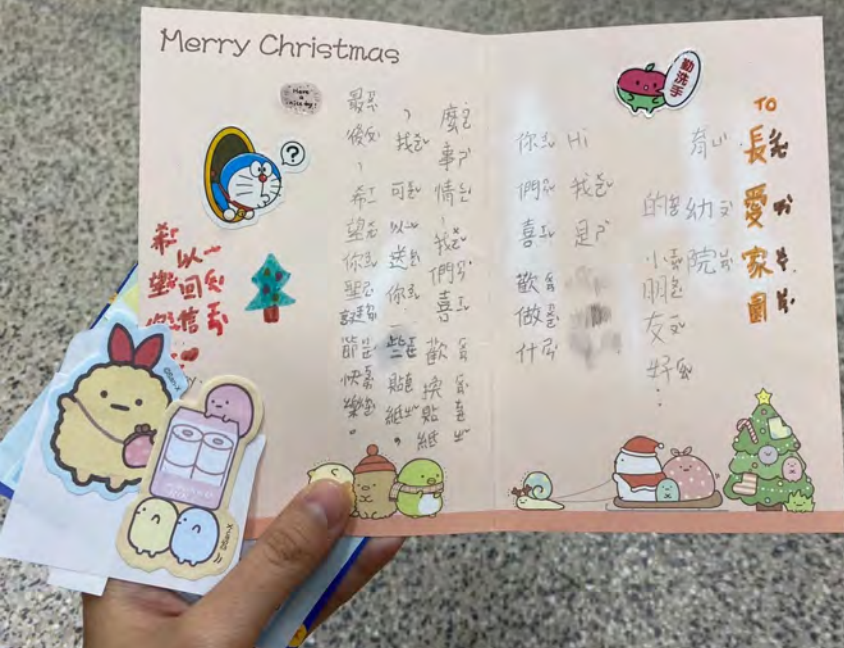 Merry Christmas
Have a nice day!
?
勤洗手
TO
長愛家園
育幼院
的小朋友好：
Hi 我是
你們喜歡做什
麼事情，我們喜歡換貼紙
，我可以送你一些貼紙。
最後，希望你聖誕節快樂。
希望你
以回信